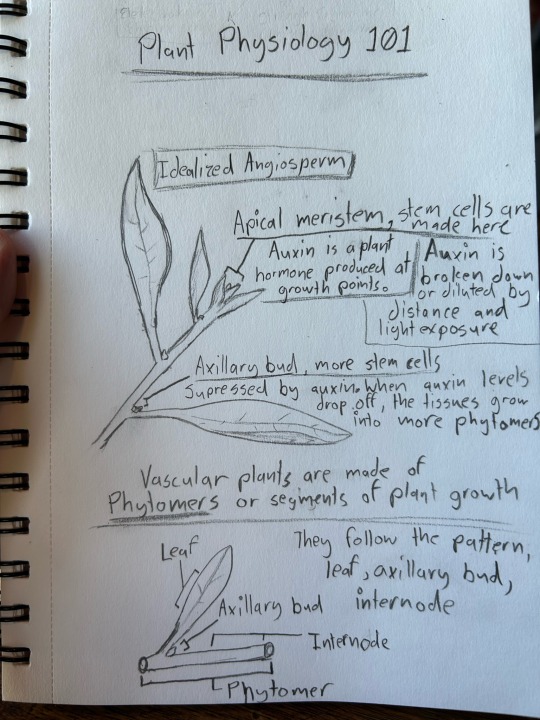 Plant Physiology 101
Idealized Angiosperm
Apical meristem, stem cells are
made here
Auxin is a plant
hormone produced at
growth points.
Auxin is
broken down
or diluted by
distance and
light exposure
Axillary bud, more stem cells
supressed by auxin. When auxin levels
drop off, the tissues grow
into more phytomers
Vascular plants are made of
Phytomers or segments of plant growth
They follow the pattern,
leaf, axillary bud,
internode
Leaf
Axillary bud
Internode
Phytomer